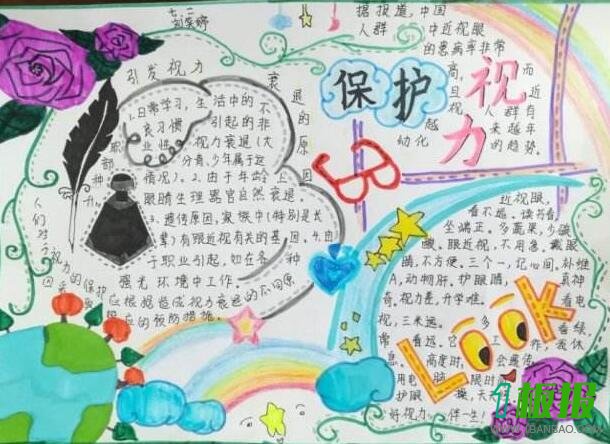 七.二
刘荣婷
据报道,中国
人群中近视眼
的患病率非常
高,而
且近
视人群自
越来越年
幼化的趋势。
保护视力
引发视力
衰退的原因
1.日常学习,生活中的不
良习惯引起的非
职业性视力衰退(大
部分青,少年属于这
种情况)。2.由于年龄上
眼睛生理器官自然衰退。
3.遗传原因,家族中(特别是长
辈)有跟近视有关的基因。4.由
于职业引起,如在各种
强光环境中工作。
人们对
视力的保护
应根据造成视力衰退的不同原
因采取相应的预防措施。
近视眼,
看不远、读书看,
坐端正。多蔬果,少碳
酸、眼近视,不用急、戴眼
睛,不方便。三个一,记心间。补维
A,动物肝、护眼睛,真神
奇。视力差,升学难。看电
视,三米远。多看绿,
常看远。工作,我休
息。高度时,会遗传。
用电脑,限时
护眼操,天天
好视力,伴一生!
LOOK
1板报
WWW.1BANBAO.COM